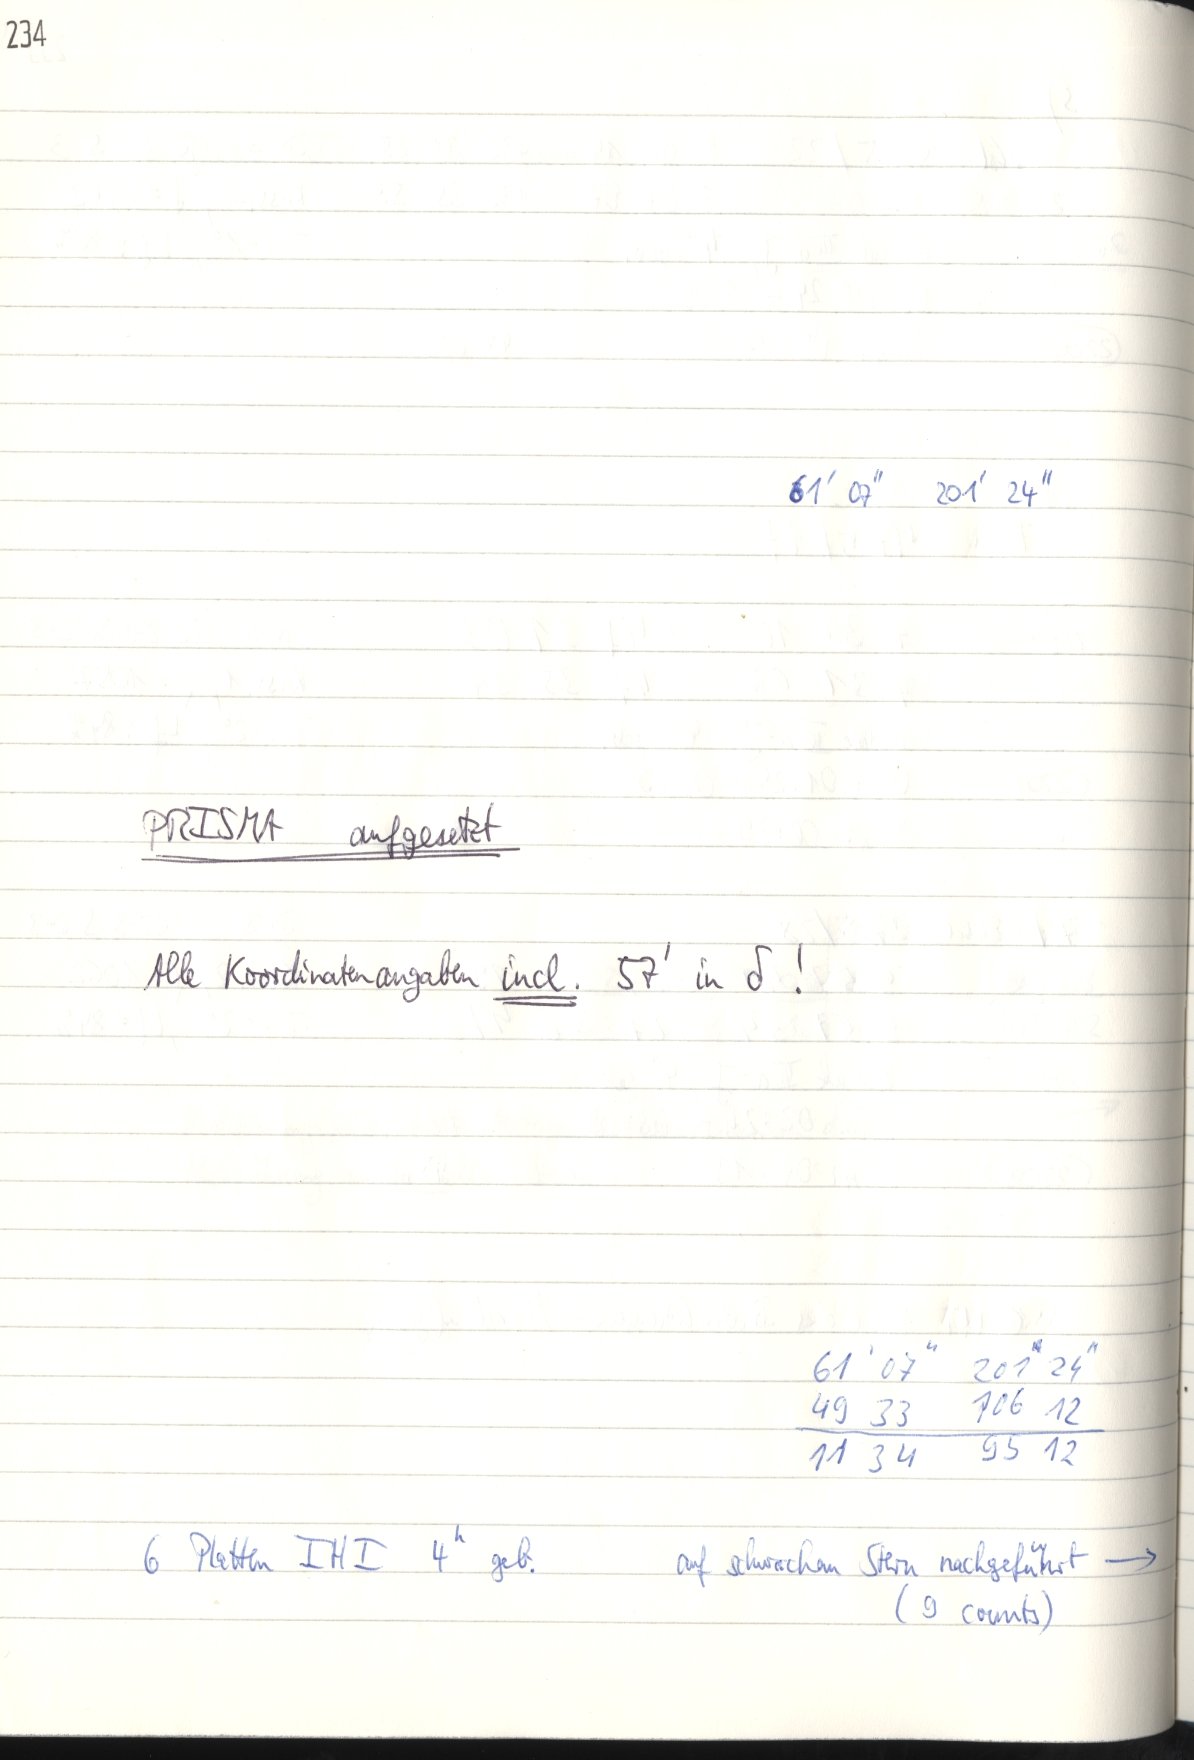 234
61' 07" 201' 24"
PRISMA aufgesetzt
Alle Koordinatenangaben incl. 57' in δ!
61' 07" 201' 24"
49 33 106 12
11 34 95 12
6 Platten IHI 4h geb. auf schwachen Stern nachgeführt →
(9 counts)